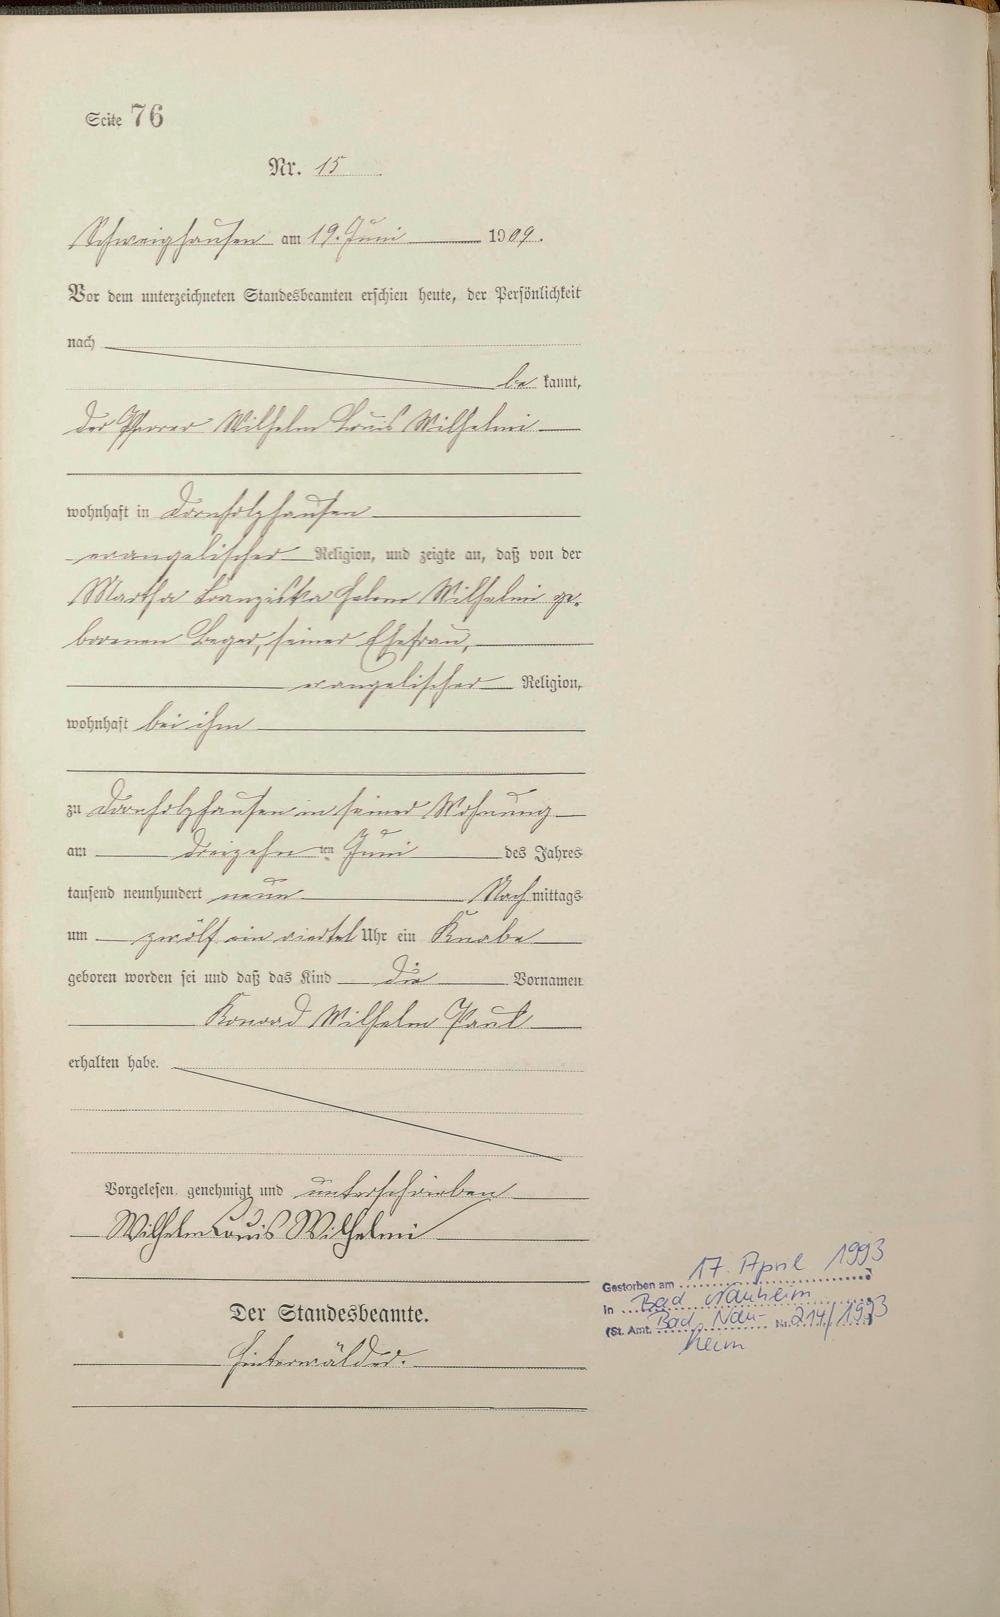 Seite 76
Nr. 15
Schweighausen am 19. Juni 1909.
Vor dem unterzeichneten Standesbeamten erschien heute, der Persönlichkeit
nach
be kannt,
der Pfarrer Wilhelm Louis Wilhelmi
wohnhaft in Dornholzhausen
evangelischer Religion, und zeigte an, daß von der
Martha Franziska Helene Wilhelmi ge-
borenen Beger, seiner Ehefrau,
evangelischer Religion,
wohnhaft bei ihm
zu Dornholzhausen in seiner Wohnung
am dreizehn ten Juni des Jahres
tausend neunhundert neun Nachmittags
um zwölf ein viertel Uhr ein Knabe
geboren worden sei und daß das Kind die Vornamen
Konrad Wilhelm Paul
erhalten habe.
Vorgelesen, genehmigt und unterschrieben
Wilhelm Louis Wilhelmi
Der Standesbeamte.
Hinterwälder.
Gestorben am 17. April 1993
in Bad Nauheim
(St. Amt. Bad Nau- Nr. 214/1993)
heim